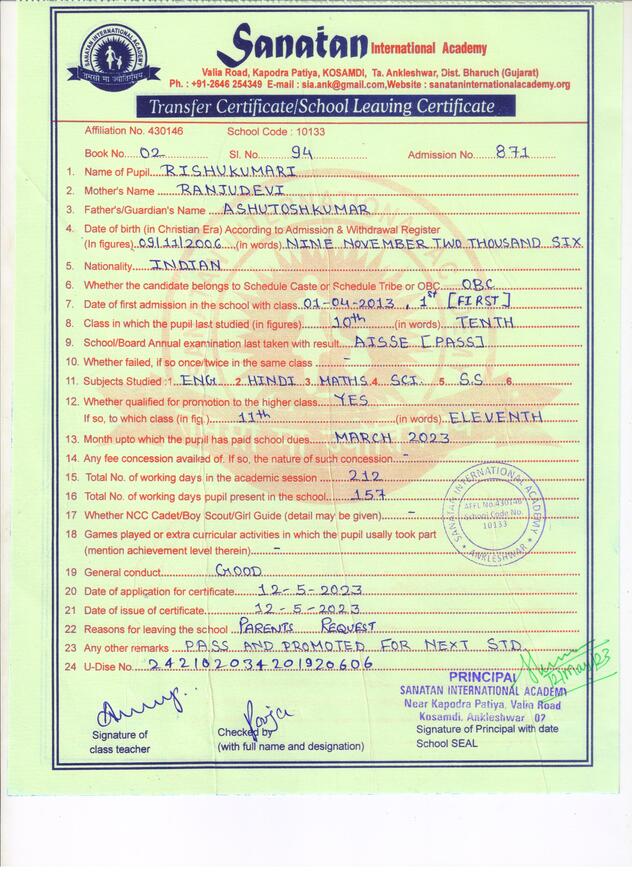 SANATAN INTERNATIONAL ACADEMY
तमसो मा ज्योतिर्गमय
Sanatan International Academy
Valia Road, Kapodra Patiya, KOSAMDI, Ta. Ankleshwar, Dist. Bharuch (Gujarat)
Ph. : +91-2646 254349 E-mail : sia.ank@gmail.com,Website : sanataninternationalacademy.org
Transfer Certificate/School Leaving Certificate
Affiliation No. 430146 School Code : 10133
Book No. 02 Sl. No. 94 Admission No. 871
1. Name of Pupil RISHUKUMARI
2. Mother's Name RANJUDEVI
3. Father's/Guardian's Name ASHUTOSHKUMAR
4. Date of birth (in Christian Era) According to Admission & Withdrawal Register
(In figures) 09/11/2006 (in words) NINE NOVEMBER TWO THOUSAND SIX
5. Nationality INDIAN
6. Whether the candidate belongs to Schedule Caste or Schedule Tribe or OBC OBC
7. Date of first admission in the school with class 01-04-2013, 1st [FIRST]
8. Class in which the pupil last studied (in figures) 10th (in words) TENTH
9. School/Board Annual examination last taken with result AISSE [PASS]
10. Whether failed, if so once/twice in the same class -
11. Subjects Studied : 1. ENG 2. HINDI 3. MATHS 4. SCI. 5. S.S 6.
12. Whether qualified for promotion to the higher class YES
If so, to which class (in fig.) 11th (in words) ELEVENTH
13. Month upto which the pupil has paid school dues MARCH 2023
14. Any fee concession availed of. If so, the nature of such concession -
15. Total No. of working days in the academic session 212
16 Total No. of working days pupil present in the school 157
17 Whether NCC Cadet/Boy Scout/Girl Guide (detail may be given) -
18 Games played or extra curricular activities in which the pupil usally took part
(mention achievement level therein) -
SANATAN INTERNATIONAL ACADEMY
AFFI. No.430146
School Code No.
10133
* ANKLESHWAR *
19 General conduct GOOD
20 Date of application for certificate 12-5-2023
21 Date of issue of certificate 12-5-2023
22 Reasons for leaving the school PARENTS REQUEST
23 Any other remarks PASS AND PROMOTED FOR NEXT STD.
24 U-Dise No. 242102034201920606
12/May/23
PRINCIPAL
SANATAN INTERNATIONAL ACADEMY
Near Kapodra Patiya, Valia Road
Kosamdi, Ankleshwar 02
Signature of class teacher
Pooja
Checked by
(with full name and designation)
Signature of Principal with date
School SEAL